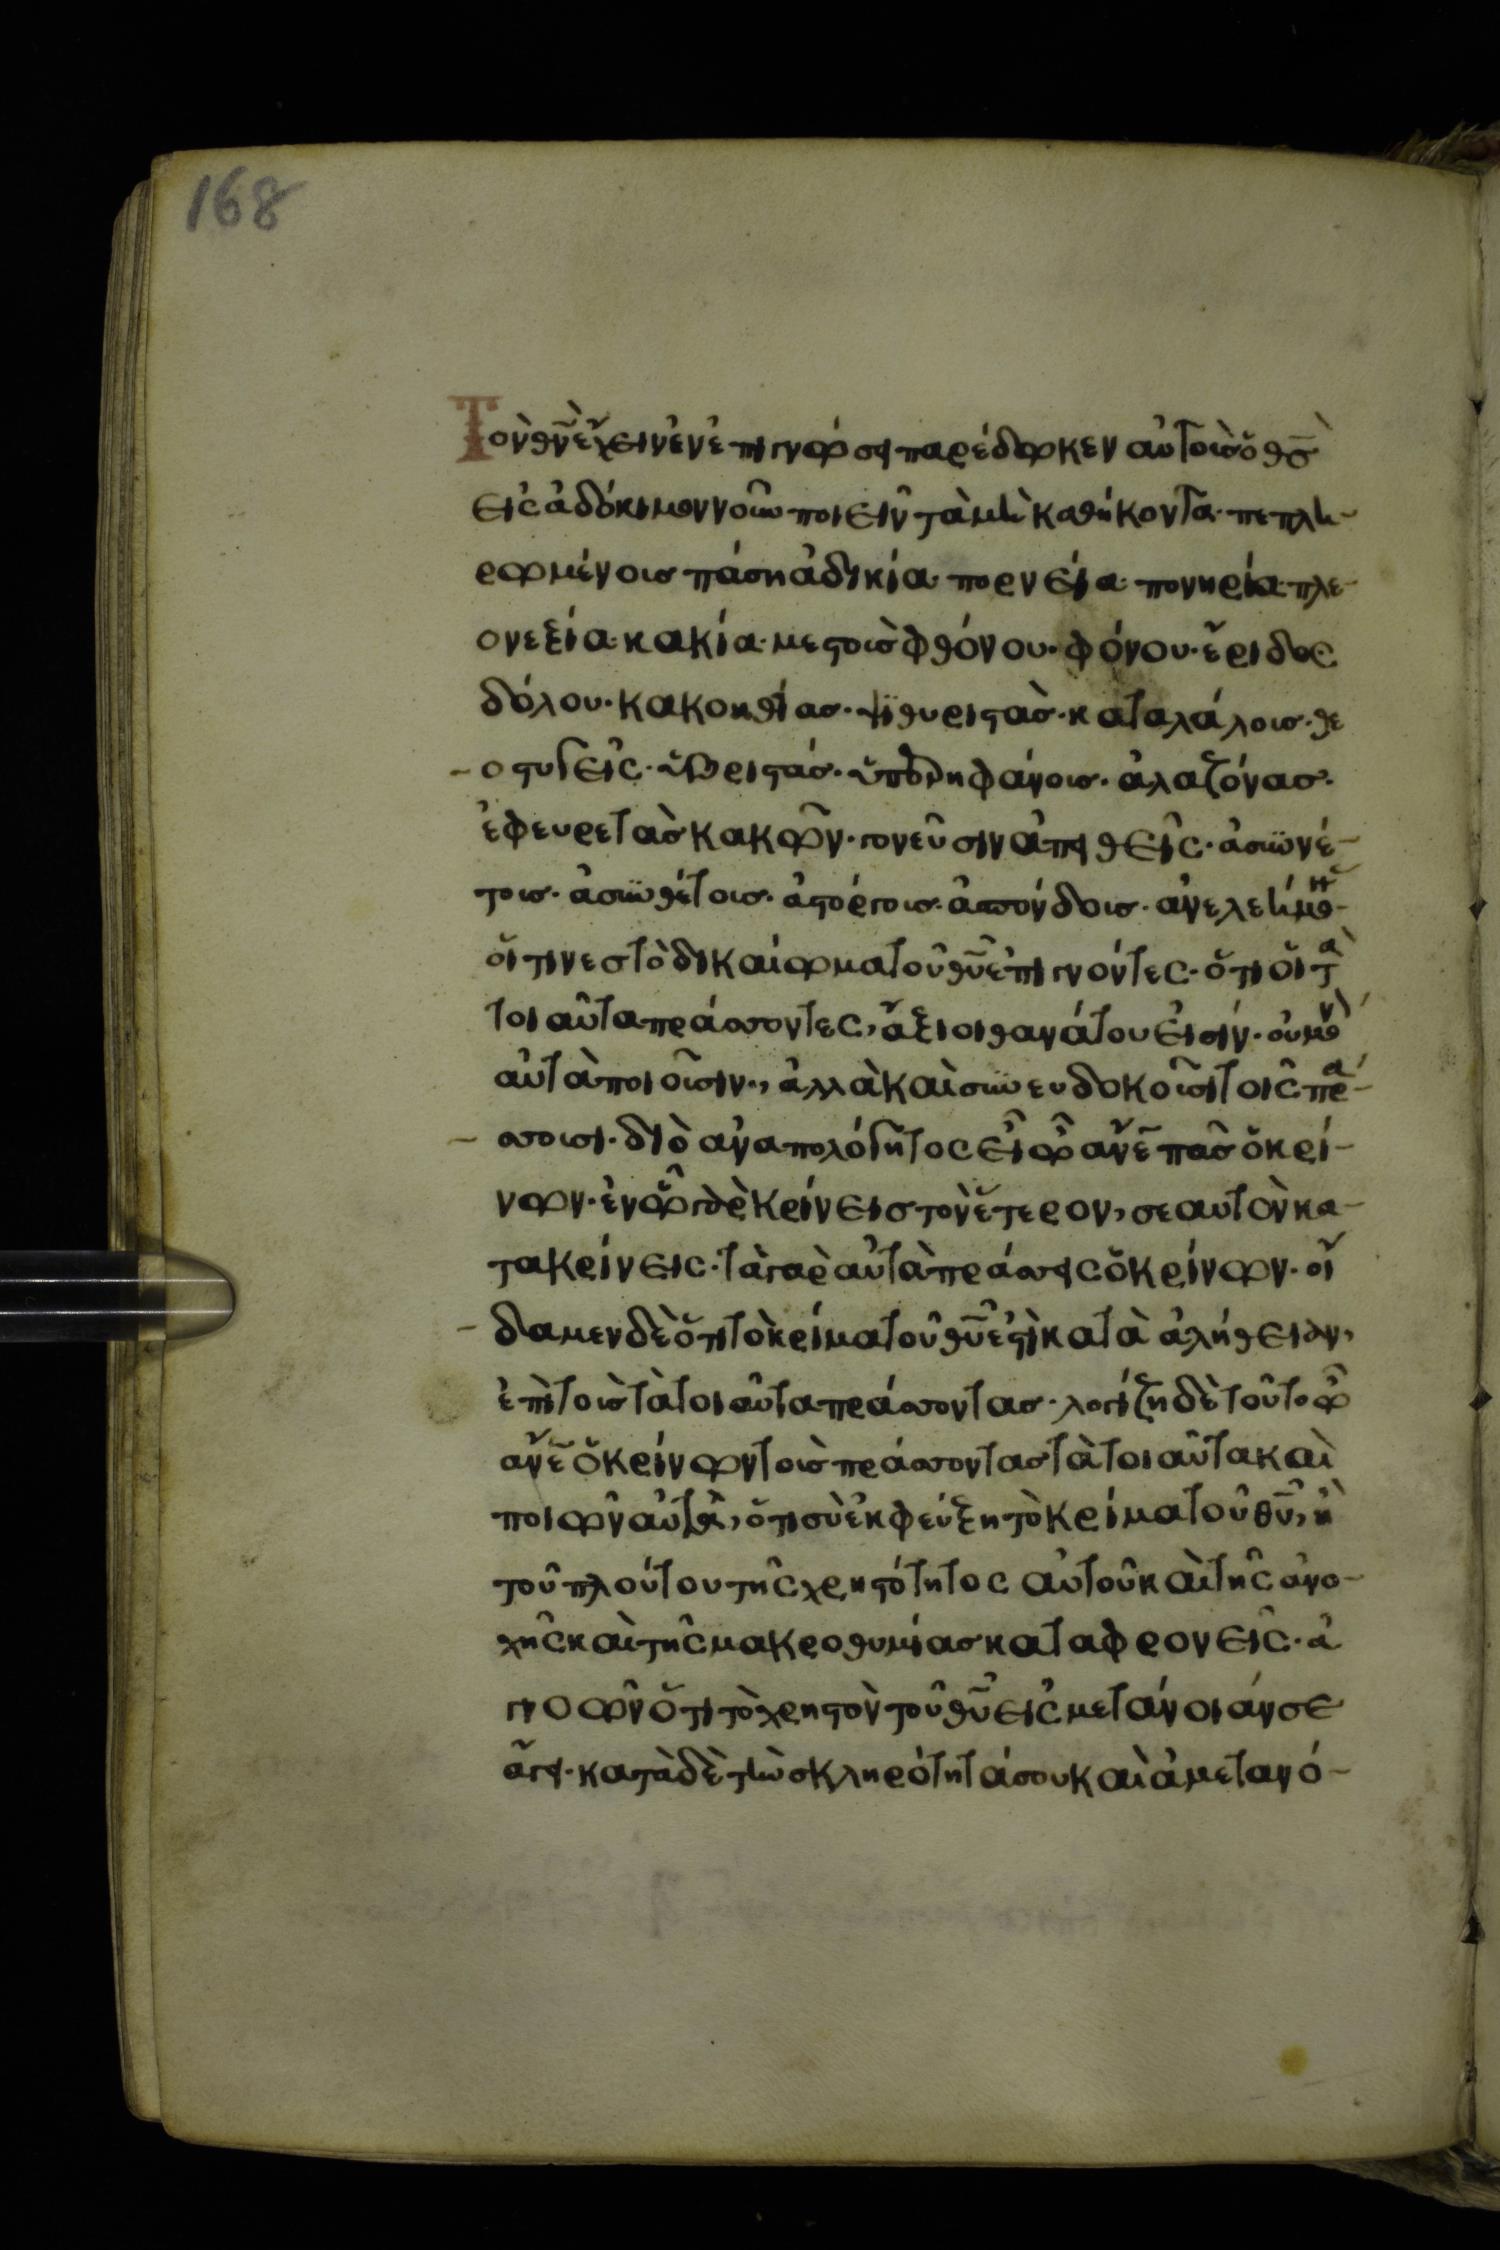 168
Τὸν θν̅ ἔχειν ἐν ἐπιγνώσει παρέδωκεν αὐτοὺς ὁ θς̅
εἰς ἀδόκιμον νοῦν ποιεῖν τὰ μὴ καθήκοντα· πεπλη-
ρωμένους πάση ἀδικία· πορνεία· πονηρία· πλε-
ονεξία· κακία· μεστοὺς φθόνου· φόνου· ἔριδος
δόλου· κακοηθίας· ψϊθυριστὰς· καταλάλους· θε
οστυγεῖς· ὑβριστάς· ὑπερηφάνους· ἀλαζόνας·
ἐφευρετὰς κακῶν· γονεῦσιν ἀπειθεῖς· ἀσυνέ-
τους· ἀσυνθέτους· ἀστόργους· ἀσπόνδους· ἀνελεήμο-
οἵτινες τὸ δικαίωμα τοῦ θυ̅ ἐπιγνόντες· ὅτι οἱ τὰ
τοιαῦτα πράσσοντες, ἄξιοι θανάτου εἰσίν· οὐ μόν
αὐτὰ ποιοῦσιν, ἀλλὰ καὶ συνευδοκοῦσι τοῖς πρά-
σσουσι· διὸ ἀναπολόγητος εἶ ὦ ἄνε̅ πᾶς ὁ κρί-
νων· ἐν ὧ γὰρ κρίνεις τὸν ἕτερον, σεαυτὸν κα-
τακρίνεις· τὰ γὰρ αὐτὰ πράσσεις ὁ κρίνων· οἴ
δαμεν δὲ ὅτι τὸ κρίμα τοῦ θυ̅ ἐστὶ κατὰ ἀλήθειαν,
ἐπὶ τοὺς τὰ τοιαῦτα πράσσοντας· λογίζη δὲ τοῦτο ὦ
ἄνε̅ ὁ κρίνων τοὺς πράσσοντας τὰ τοιαῦτα καὶ
ποιῶν αὐτὰ, ὅτι σὺ ἐκφεύξη τὸ κρίμα τοῦ θυ̅, ἢ
τοῦ πλούτου τῆς χρηστότητος αὐτοῦ καὶ τῆς ἀνο-
χῆς καὶ τῆς μακροθυμίας καταφρονεῖς· ἀ
γνοῶν ὅτι τὸ χρηστὸν τοῦ θυ̅ εἰς μετάνοιάν σε
ἄγει· κατὰ δὲ τὴν σκληρότητά σου καὶ ἀμετανό-